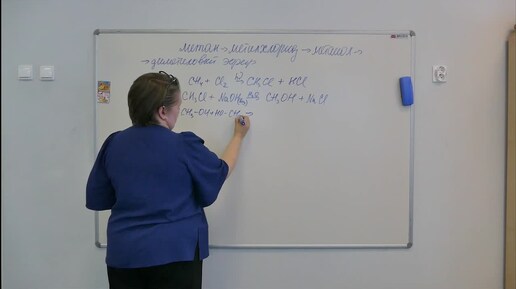 метан → метилхлорид → метанол →
→ диметиловый эфир
CH₄ + Cl₂ → CH₃Cl + HCl
CH₃Cl + NaOH → CH₃OH + NaCl
CH₃-OH + HO-CH₃ →